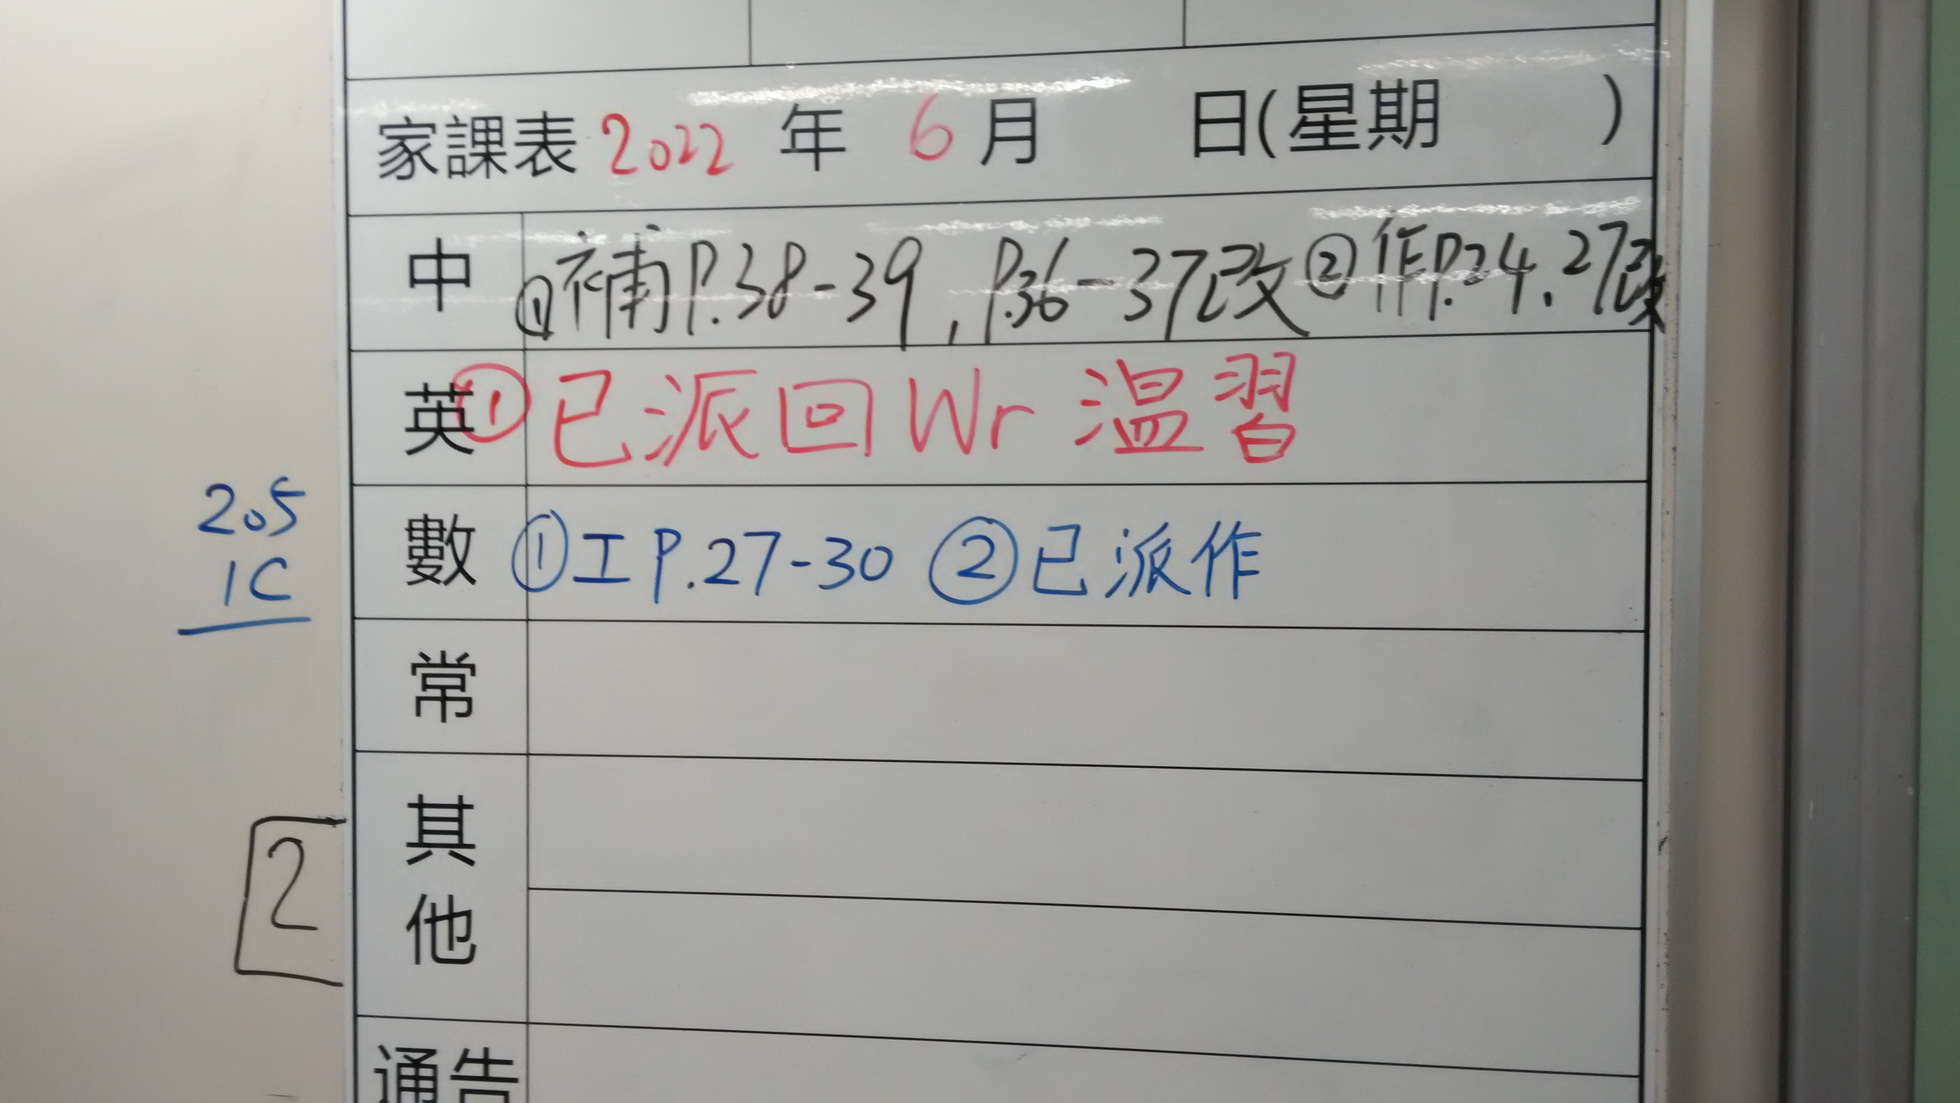 家課表 2022 年 6 月 日(星期 )
中 ①補P.38-39, P.36-37改 ②作P.24、27改
英 ①已派回Wr 温習
205
1C
數 ①工P.27-30 ②已派作
常
2
其他
通告